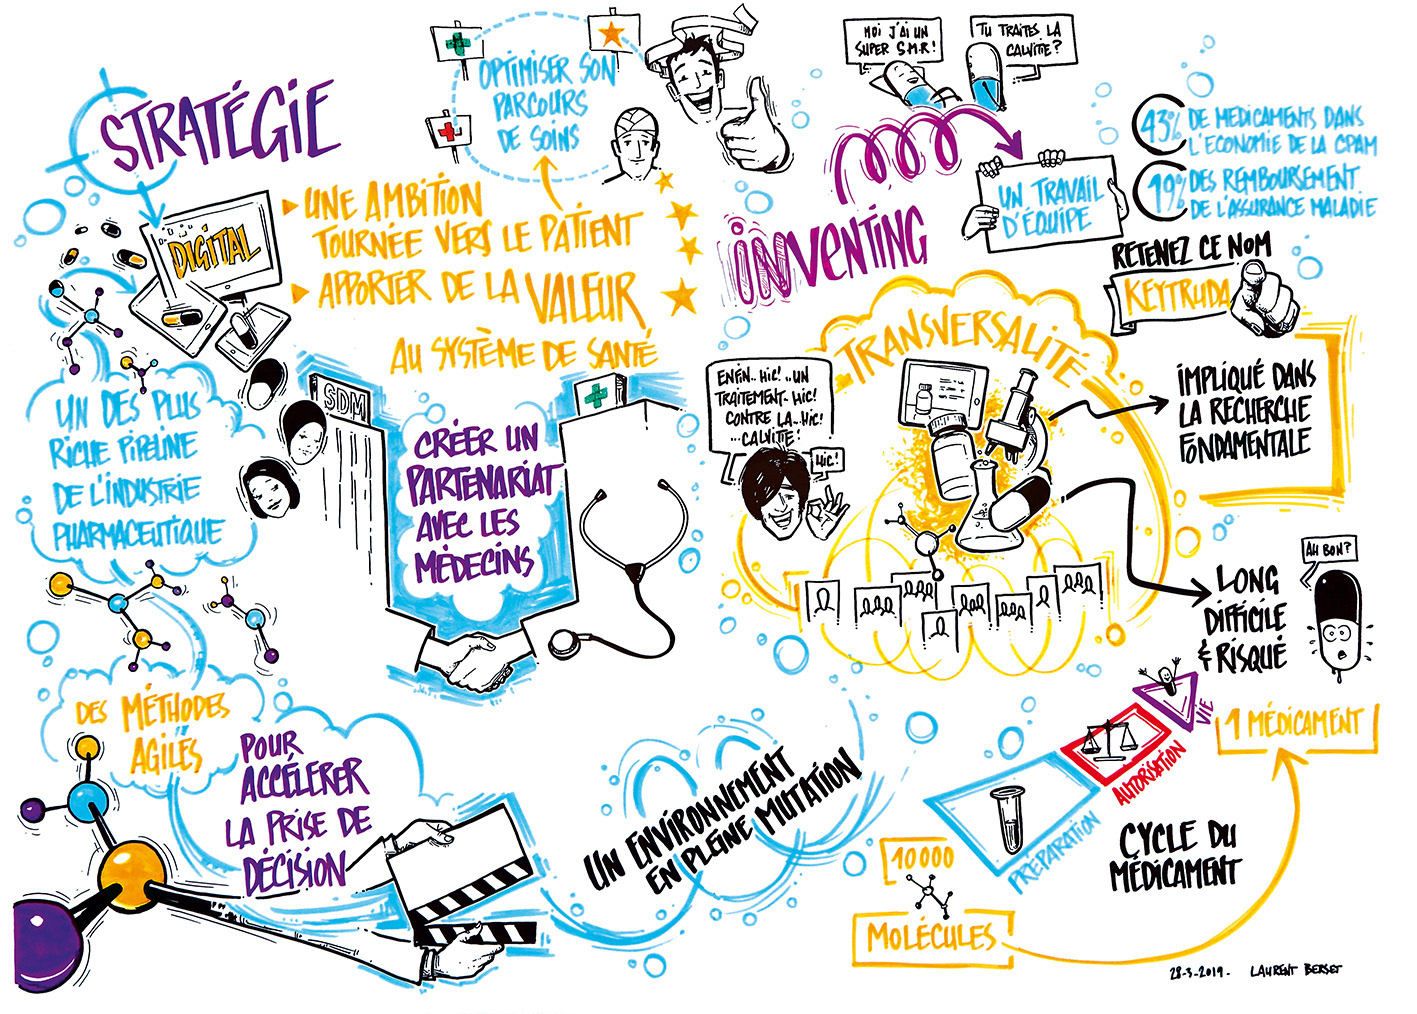 STRATÉGIE
DIGITAL
OPTIMISER SON
PARCOURS
DE SOINS
UNE AMBITION
TOURNÉE VERS LE PATIENT
APPORTER DE LA VALEUR
AU SYSTÈME DE SANTÉ
UN DES PLUS
RICHE PIPELINE
DE L'INDUSTRIE
PHARMACEUTIQUE
SDM
CRÉER UN
PARTENARIAT
AVEC LES
MÉDECINS
DES MÉTHODES
AGILES
POUR
ACCÉLERER
LA PRISE DE
DÉCISION
UN ENVIRONNEMENT
EN PLEINE MUTATION
MOI J'AI UN
SUPER S.M.R!
TU TRAITES LA
CALVITIE?
INVENTING
UN TRAVAIL
D'ÉQUIPE
43% DE MEDICAMENTS DANS
L'ECONOMIE DE LA CPAM
19% DES REMBOURSEMENT
DE L'ASSURANCE MALADIE
RETENEZ CE NOM
KEYTRUDA
TRANSVERSALITÉ
ENFIN.. HIC! ..UN
TRAITEMENT. HIC!
CONTRE LA...HIC!
...CALVITIE!
HIC!
IMPLIQUÉ DANS
LA RECHERCHE
FONDAMENTALE
LONG
DIFFICILE
& RISQUÉ
AH BON?
1 MÉDICAMENT
VIE
AUTORISATION
PRÉPARATION
CYCLE DU
MÉDICAMENT
10000
MOLÉCULES
28-3-2019- LAURENT BERSET